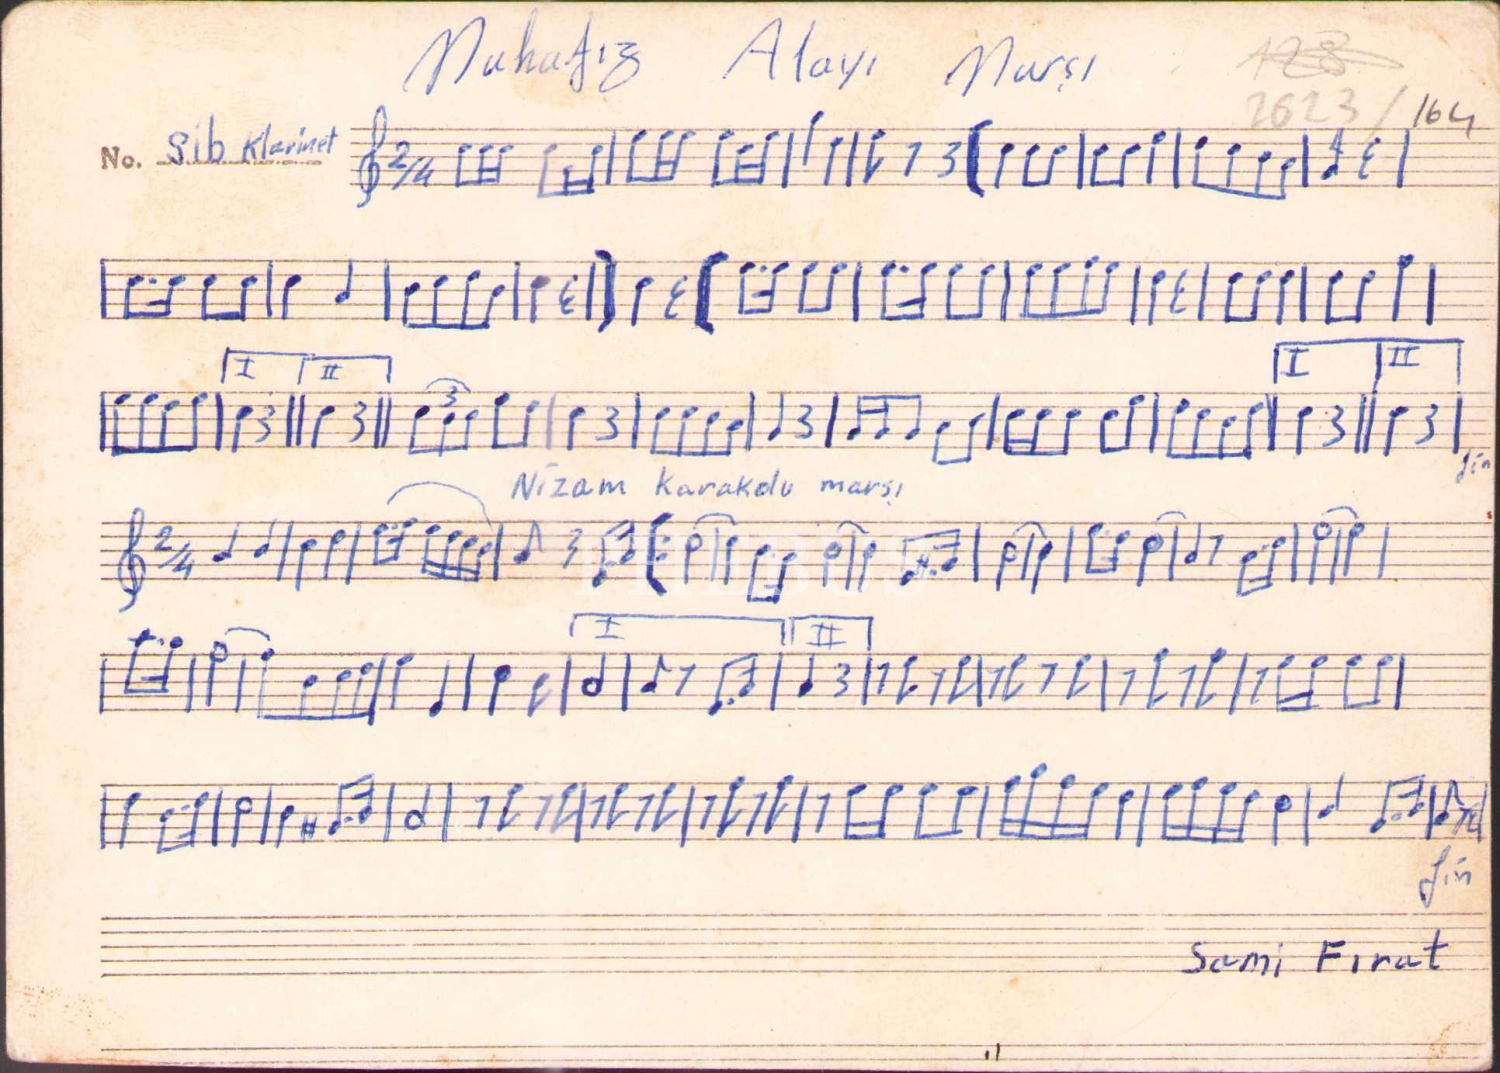 Muhafız Alayı Marşı
2623/164
No. Sib Klarinet
2/4
I II
3
I II
fin
Nizam Karakolu marşı
2/4
I II
fin
Sami Fırat